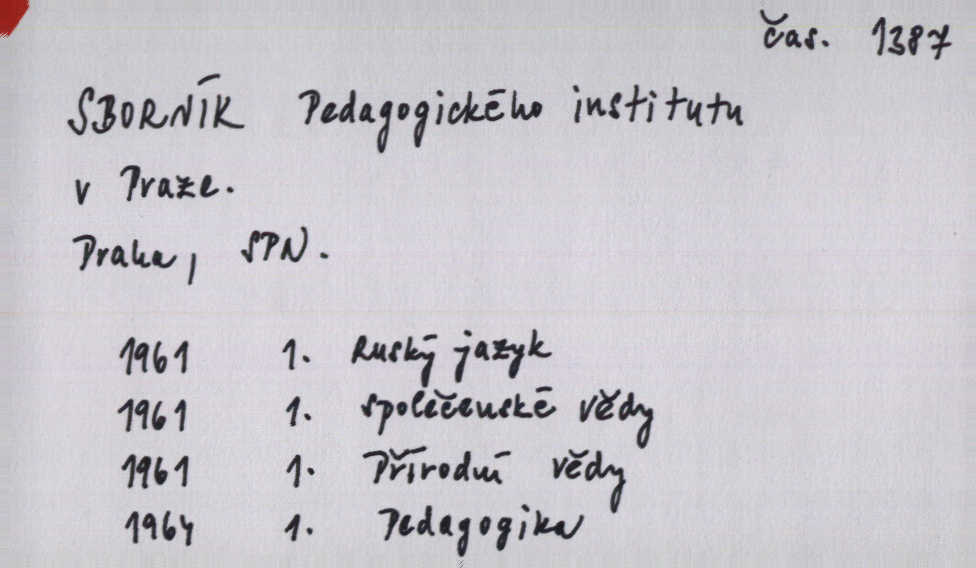 čas. 1387
SBORNÍK Pedagogického institutu
v Praze.
Praha, SPN.
1961 1. Ruský jazyk
1961 1. společenské vědy
1961 1. Přírodní vědy
1964 1. Pedagogika